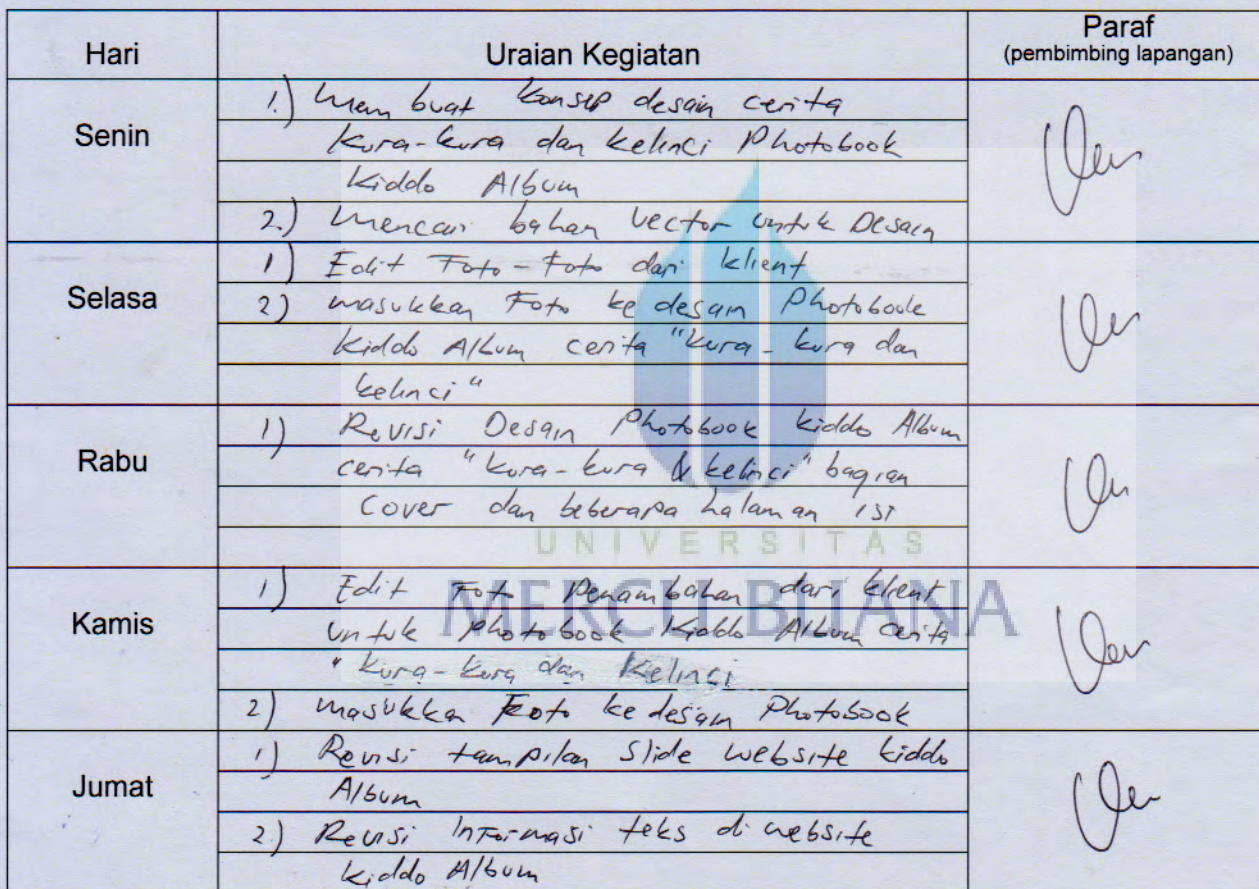 Hari Uraian Kegiatan Paraf
(pembimbing lapangan)
Senin
1.) Membuat konsep desain cerita
kura-kura dan kelinci Photobook
Kiddo Album
2.) Mencari bahan vector untuk Desain
Selasa
1) Edit Foto-Foto dari klient
2) masukkan Foto ke desain Photobook
Kiddo Album cerita "kura-kura dan
kelinci"
Rabu
1) Revisi Desain Photobook kiddo Album
cerita "kura-kura & kelinci" bagian
Cover dan beberapa halaman isi
UNIVERSITAS
MERCU BUANA
Kamis
1) Edit Foto Penambahan dari klient
untuk Photobook Kiddo Album cerita
"kura-kura dan Kelinci
2) masukkan Foto ke desain Photobook
Jumat
1) Revisi tampilan Slide website kiddo
Album
2.) Revisi Informasi teks di website
kiddo Album